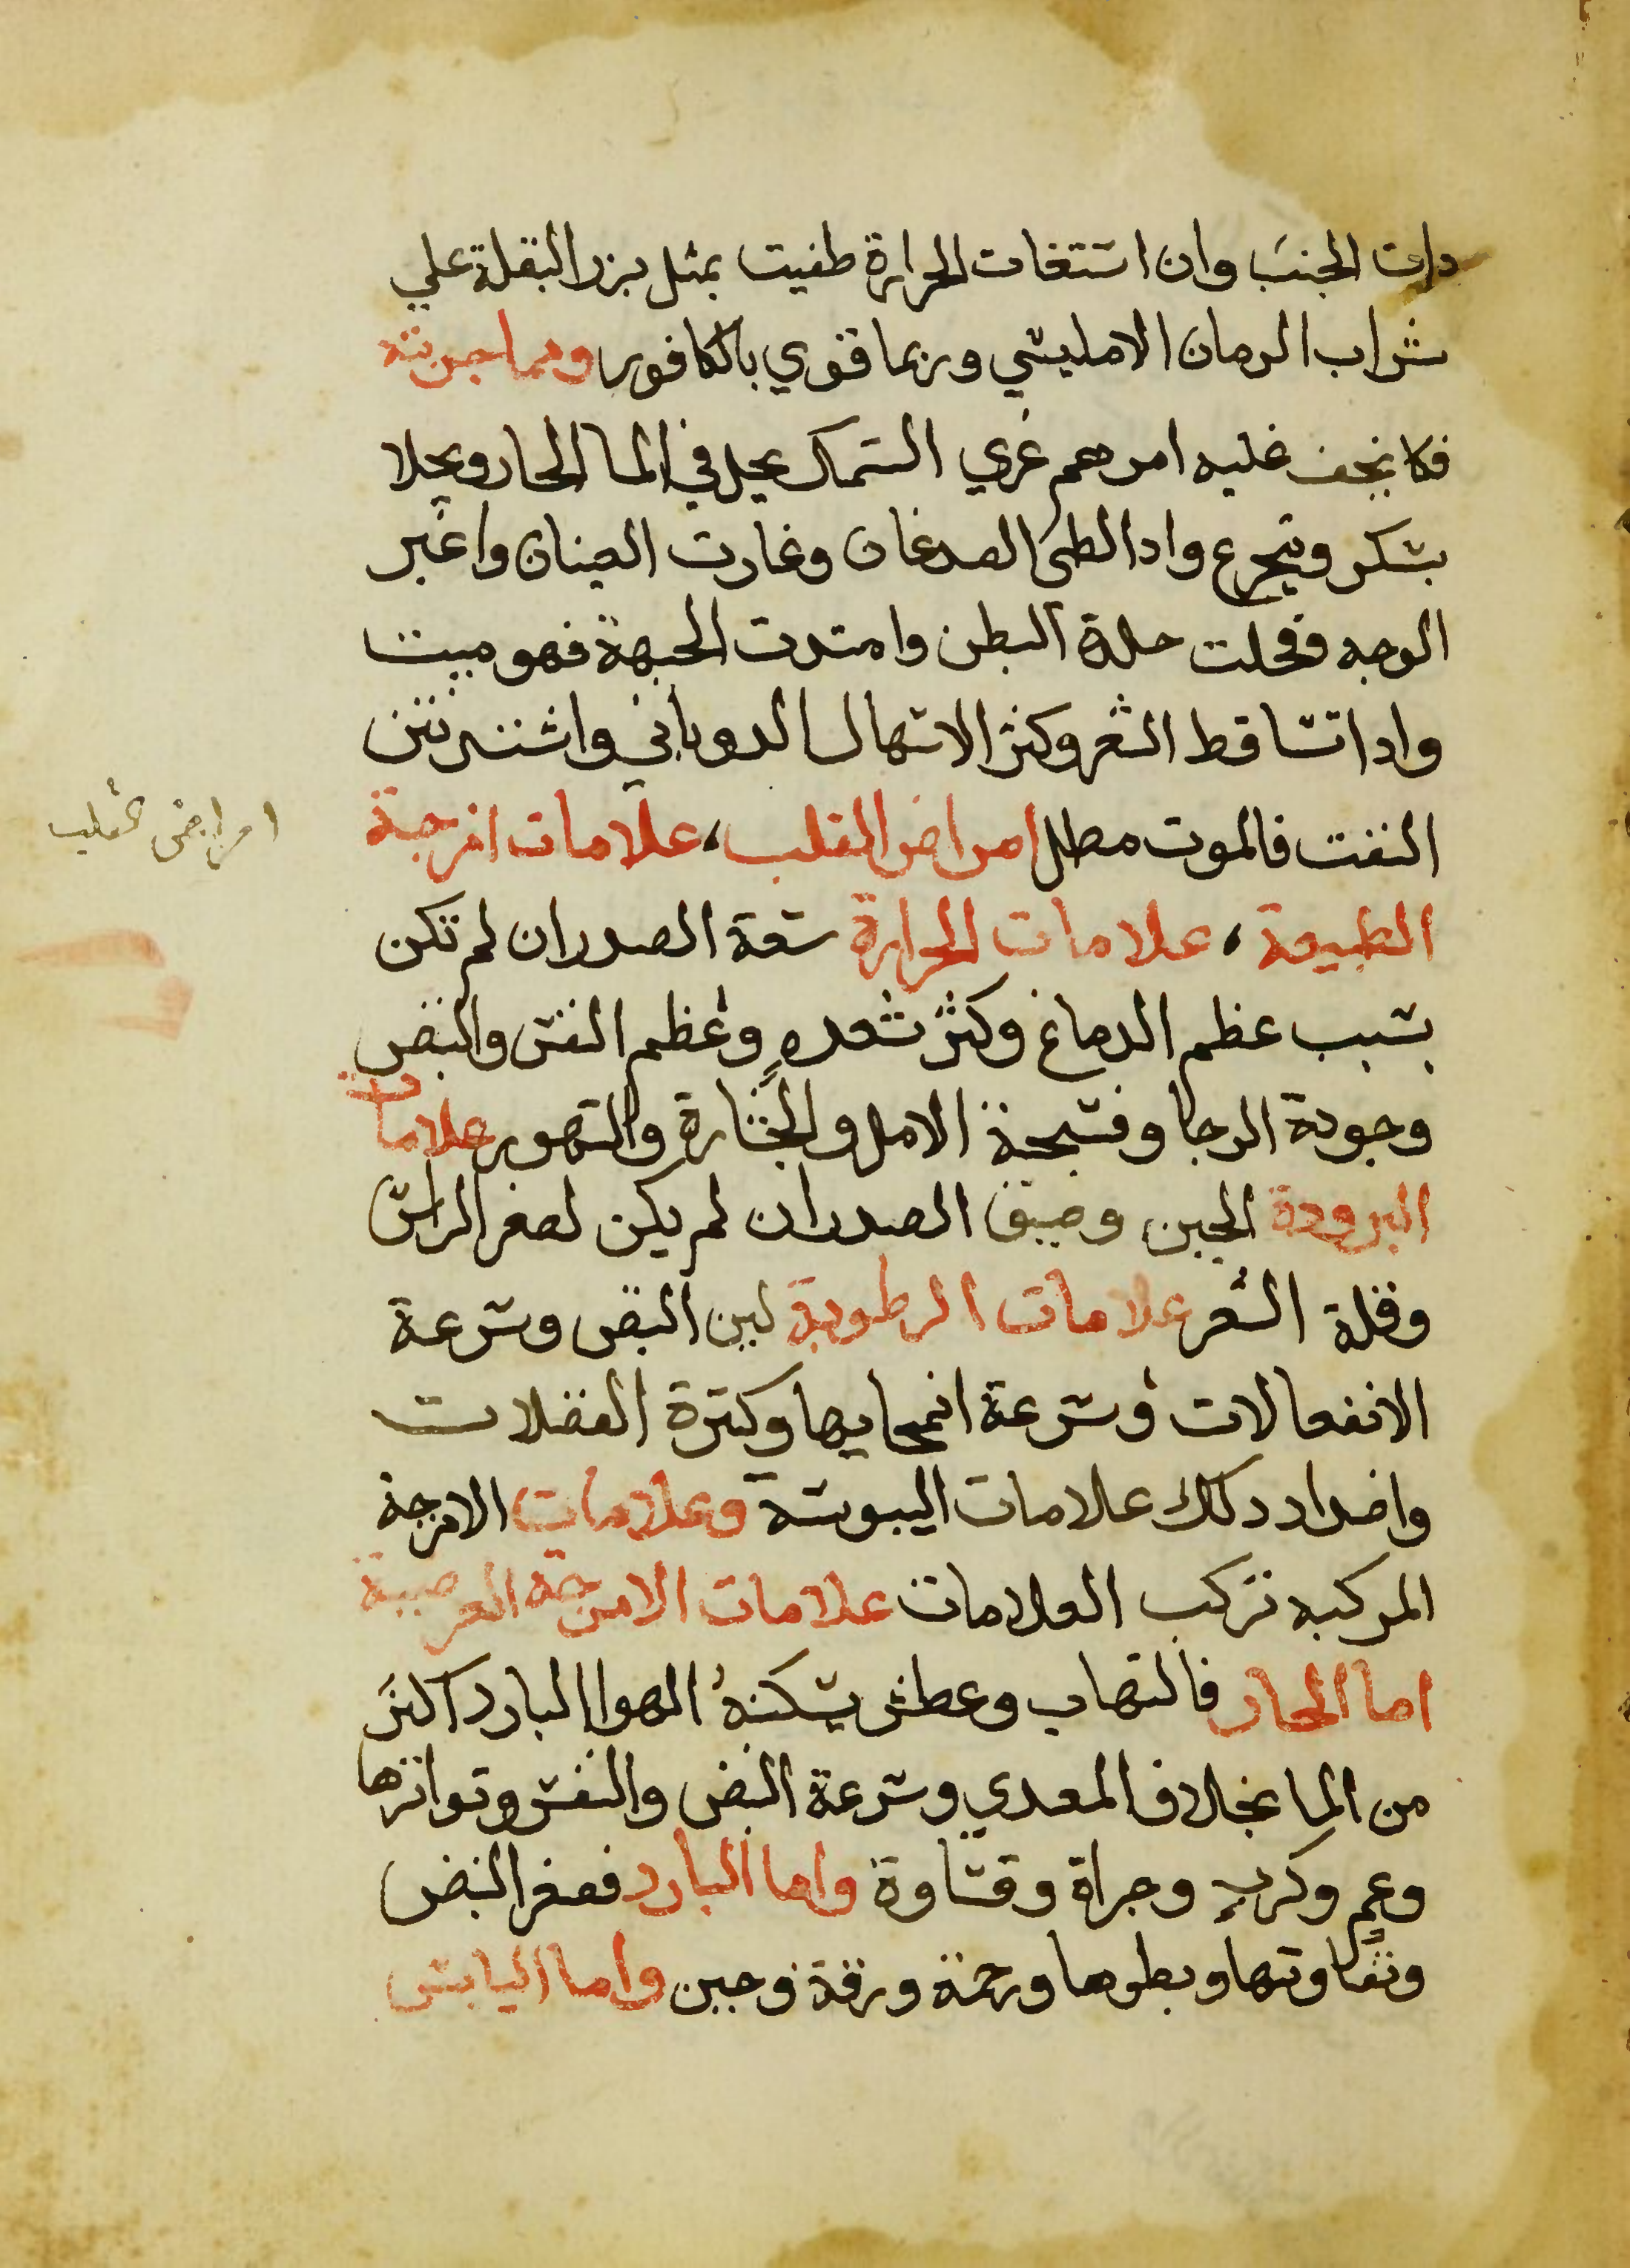 دات الجنب وان استتغات الحرارة طفيت بمثل بزر البقلة علي
شراب الرمان الامليسي وربما قوي بالكافور ومما جربته
فلا نجف عليه امرهم غري السمك يحل في الما الحار ويحلا
بسكر ويتجرع وادا لطى الصدغان وغارت العينان واغبر
الوجه وقحلت جلدة البطن وامتدت الجبهة فهو ميت
وادا تساقط الشعر وكثر الاسهال الدوباني واشتد نتن
النفث فالموت مطل امراض القلب، علامات امزجة
الطبيعة، علامات الحرارة سعة الصدر ان لم تكن
بسبب عظم الدماغ وكثر شعره وعظم النفس والنبض
وجودة الرجا وفسحة الامل والجسارة والتهور علامات
البرودة الجبن وضيق الصدر ان لم يكن لصغر الراس
وقلة الشعر علامات الرطوبة لين النبض وسرعة
الانفعالات وسرعة انمحايها وكثرة الفضلات
واضداد دلك علامات اليبوسة وعلامات الامزجة
المركبه تركب العلامات علامات الامزجة العرضية
اما الحار فالتهاب وعطش يسكنه الهوا البارد اكثر
من الما بخلاف المعدي وسرعة النبض والنفس وتواترها
وغم وكرب وجراة وقساوة واما البارد فصغر النبض
وتفاوتها وبطوها ورحمة ورقة وجبن واما اليابس
امراض القلب